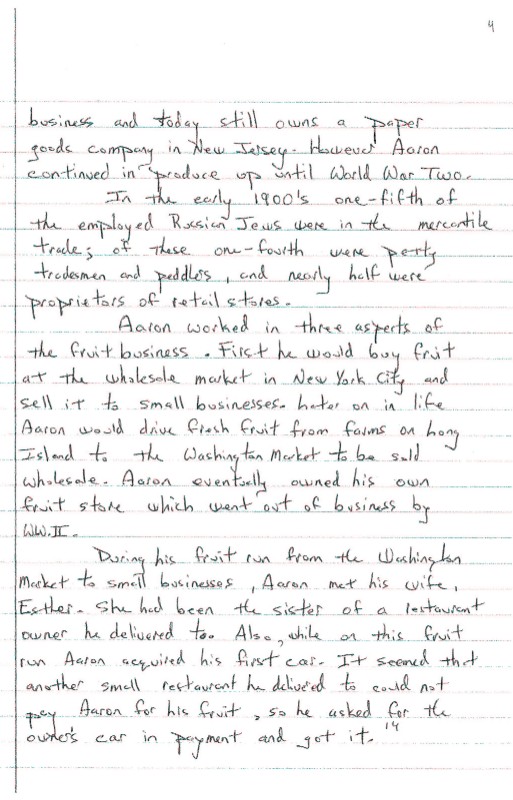 4
business and today still owns a paper
goods company in New Jersey. However Aaron
continued in produce up until World War Two.
In the early 1900's one-fifth of
the employed Russian Jews were in the mercantile
trade; of these one-fourth were petty
tradesmen and peddlers, and nearly half were
proprietors of retail stores.
Aaron worked in three aspects of
the fruit business. First he would buy fruit
at the wholesale market in New York City and
sell it to small businesses. Later on in life
Aaron would drive fresh fruit from farms on Long
Island to the Washington Market to be sold
wholesale. Aaron eventually owned his own
fruit store which went out of business by
WW.II.
During his fruit run from the Washington
Market to small businesses, Aaron met his wife,
Esther. She had been the sister of a restaurant
owner he delivered too. Also, while on this fruit
run Aaron acquired his first car. It seemed that
another small restaurant he delivered to could not
pay Aaron for his fruit, so he asked for the
owner's car in payment and got it. 14